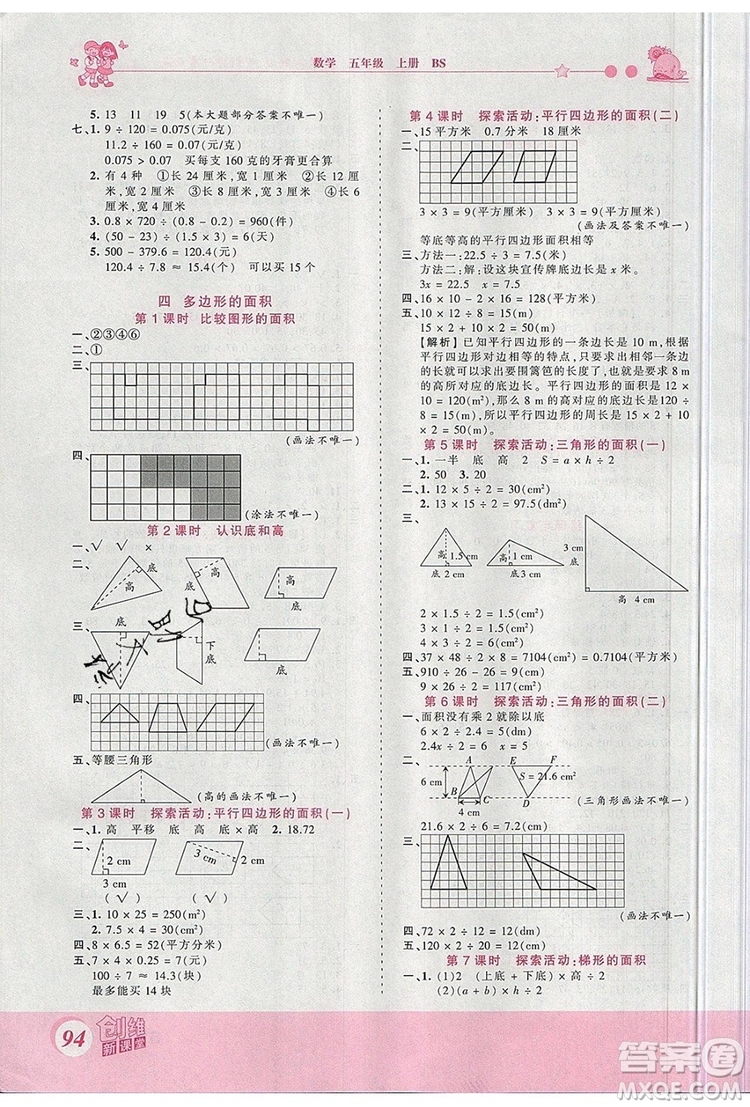 数学 五年级 上册 BS
5. 13 11 19 5(本大题部分答案不唯一)
七、1. 9 ÷ 120 = 0.075(元/克)
11.2 ÷ 160 = 0.07(元/克)
0.075 > 0.07 买每支 160 克的牙膏更合算
2. 有 4 种 ①长 24 厘米,宽 1 厘米 ②长 12 厘米,宽 2 厘米 ③长 8 厘米,宽 3 厘米 ④长 6
厘米,宽 4 厘米
3. 0.8 × 720 ÷ (0.8 - 0.2) = 960(件)
4. (50 - 23) ÷ (50 - 45.5) = 6(天)
5. 500 - 379.6 = 120.4(元)
120.4 ÷ 7.8 ≈ 15(个) 可以买 15 个
四 多边形的面积
第 1 课时 比较图形的面积
一、①②③④⑥
二、①
三、
(画法不唯一)
四、
(涂法不唯一)
第 2 课时 认识底和高
一、√ √ ×
二、
底 高 底 高 高 底
三、
底 底 下底
四、
(画法不唯一)
五、等腰三角形
(高的画法不唯一)
第 3 课时 探索活动:平行四边形的面积(一)
一、1. 高 平移 底 高 底 高 2. 18.72
二、
2 cm 3 cm
(√) (√)
三、1. 10 × 25 = 250(m²)
2. 7.5 × 4 = 30(m²)
四、8 × 6.5 = 52(平方分米)
五、7.5 - 0.25 × 2 = 7(元)
100 ÷ 7 ≈ 14.3(块)
最多能买 14 块
94
创维
新课堂
第 4 课时 探索活动:平行四边形的面积(二)
一、15 平方米 0.7 分米 18 厘米
二、
3 × 3 = 9(平方厘米) 3 × 3 = 9(平方厘米)
(画法及答案不唯一)
等底等高的平行四边形面积相等
三、方法一:22.5 ÷ 3 = 7.5(米)
方法二:解:设这块宣传牌底边长是 x 米。
3x = 22.5 x = 7.5
四、16 × 10 - 2 × 16 = 128(平方米)
五、10 × 12 ÷ 8 = 15(m)
15 × 2 + 10 × 2 = 50(m)
【解析】已知平行四边形的一条边长是 10 m,根据
平行四边形对边相等的特点,只要求出相邻的另一
条边长就可以求出要围篱笆的长度了,也就是 8 m
的高所对应的底边长。平行四边形的面积是 12 ×
10 = 120(m²),那么 8 m 的高对应的底边长=120 ÷
8 = 15(m)。所以平行四边形的周长是 15 × 2 +
10 × 2 = 50(m)。
第 5 课时 探索活动:三角形的面积(一)
一、1. 一半 底 高 2 S = a × h ÷ 2
2. 50 3. 20
二、1. 4 × 6 ÷ 2 = 12(dm²)
2. 13 × 15 ÷ 2 = 97.5(dm²)
三、
高 1.5 cm 底 2 cm
高 1 cm 底 3 cm
底 3 cm 高 4 cm
2 × 1.5 ÷ 2 = 1.5(cm²)
3 × 1 ÷ 2 = 1.5(cm²)
3 × 4 ÷ 2 = 6(cm²)
四、37 × 48 ÷ 2 × 8 = 7104(cm²) = 0.7104(平方米)
五、910 ÷ 26 - 26 = 9(m)
9 × 26 ÷ 2 = 117(m²)
第 6 课时 探索活动:三角形的面积(二)
一、面积没有乘 2 就除以底
6 × 2 ÷ 2.4 = 5(dm)
2.4x ÷ 2 = 6 x = 5
二、
A E F
S=21.6 cm²
6 cm
B C D
4 cm
(三角形画法不唯一)
21.6 × 2 ÷ 6 = 7.2(cm)
三、
(画法不唯一)
四、72 × 2 ÷ 12 = 12(dm)
五、120 × 2 ÷ 20 = 12(m)
第 7 课时 探索活动:梯形的面积
一、1. (1)2 (上底 + 下底) × 高 ÷ 2
(2)(a + b) × h ÷ 2
答案圈
MXQE.COM